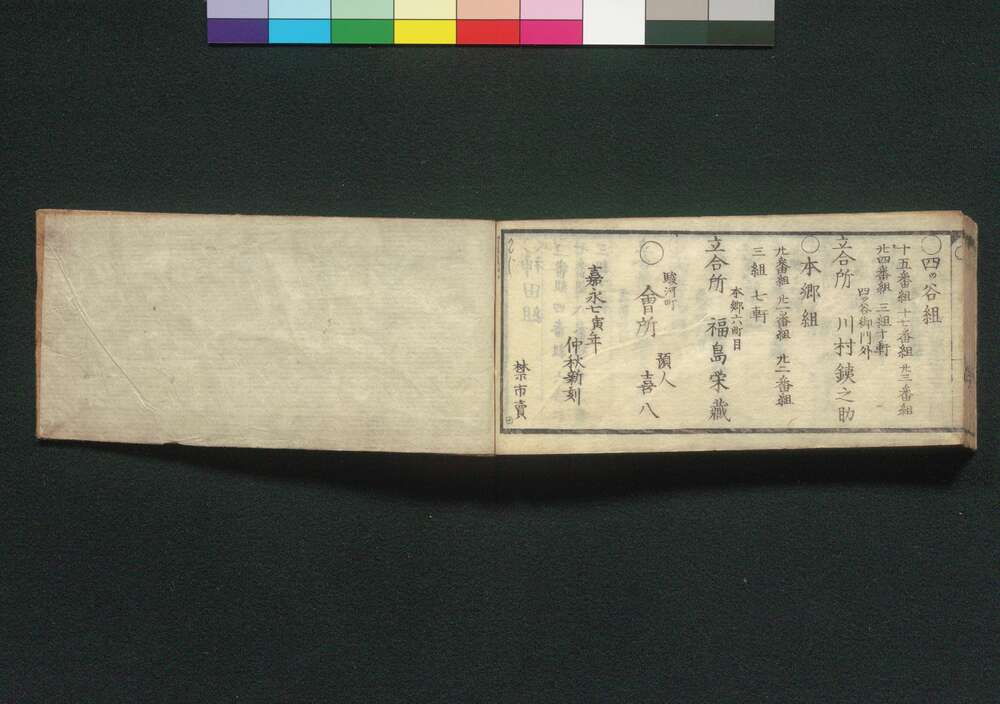 ○四ッ谷組
十五番組 十七番組 廾三番組
廾四番組 三組十軒
四ッ谷御門外
立合所 川村銕之助
○本郷組
九番組 廾一番組 廾二番組
三組 七軒
本郷六町目
立合所 福島栄蔵
駿河町
○會所 預人 喜八
嘉永七寅年
仲秋新刻
禁市賣